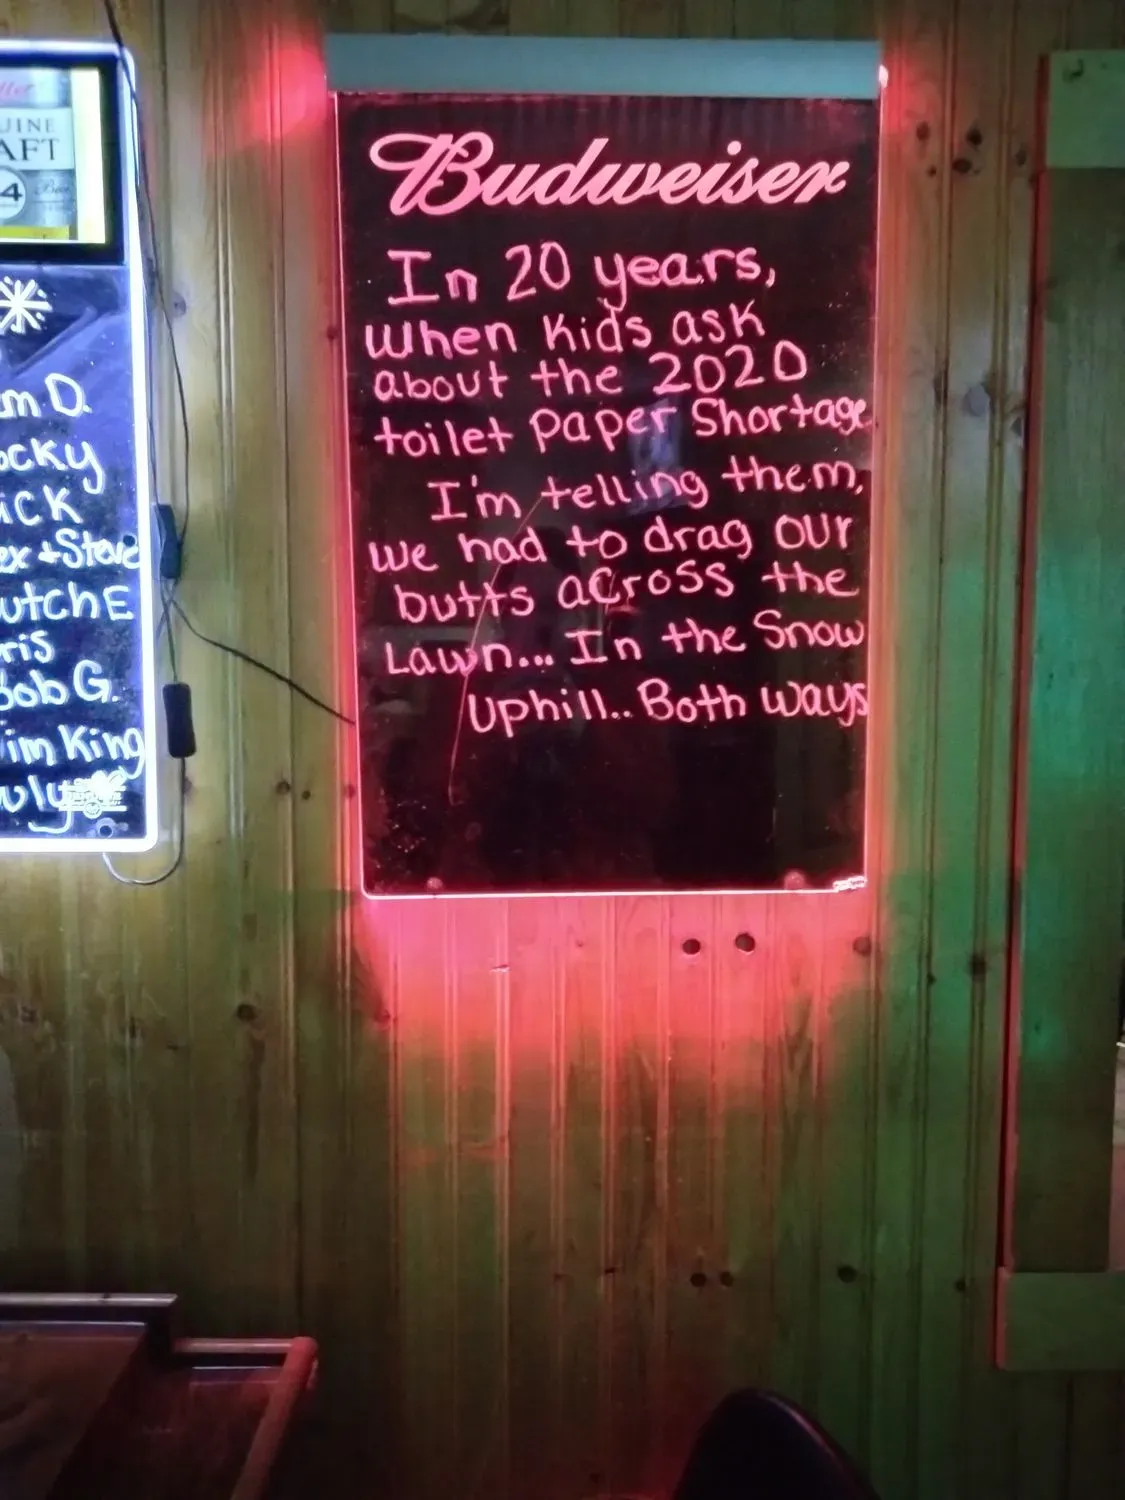 UINE
AFT
4
Beer
m D.
ocky
ick
ex + Steve
utch E
ris
Bob G.
Jim King
uly
Budweiser
In 20 years,
When Kids ask
about the 2020
toilet paper Shortage
I'm telling them,
we had to drag our
butts across the
Lawn... In the Snow
Uphill.. Both ways